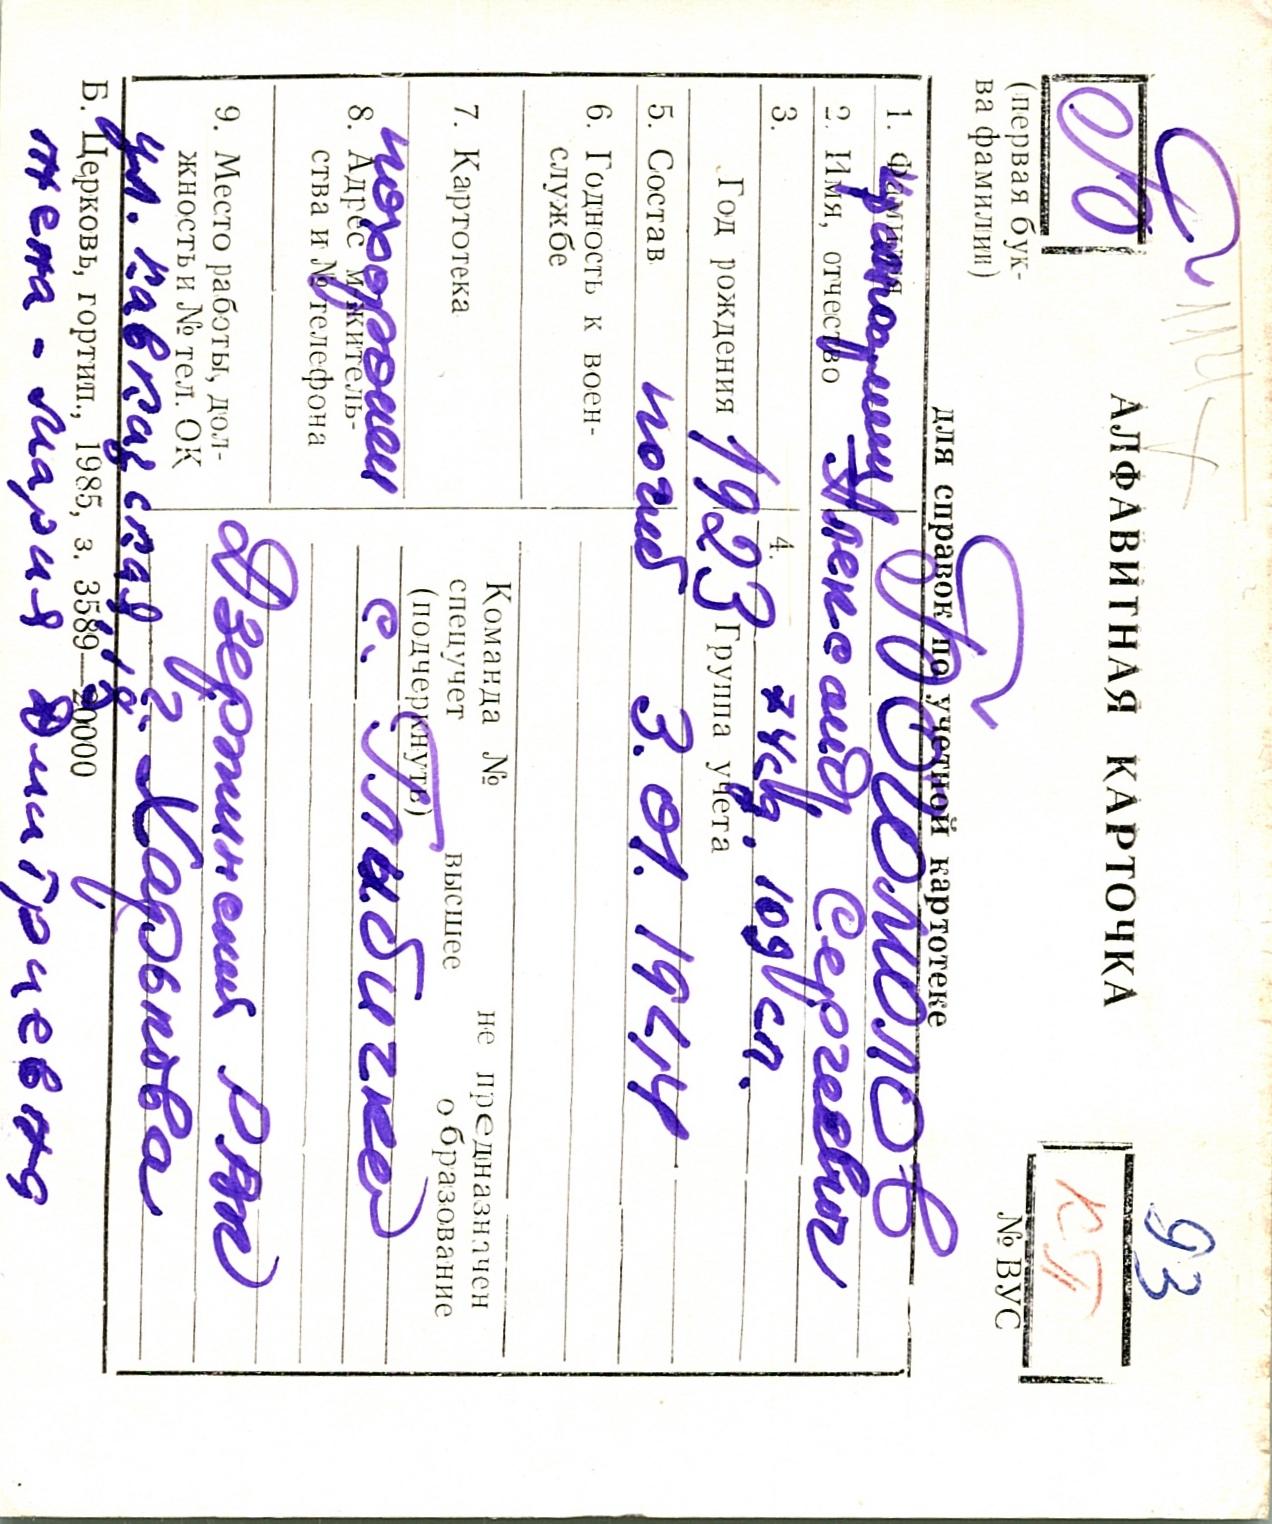 93
АЛФАВИТНАЯ КАРТОЧКА
КП
№ ВУС
(первая бук-
ва фамилии)
для справок по учетной картотеке
1. Фамилия
2. Имя, отчество Александр Сергеевич
3.
Год рождения 1923
4.
Группа учета
5. Состав погиб 3.01.1944
6. Годность к воен-
службе
7. Картотека
Команда № не предназначен
спецучет высшее образование
(подчеркнуть)
8. Адрес и житель-
ства и № телефона
похоронен с. Глыбичке
9. Место работы, дол-
жность и № тел. ОК
Дзержинский РВК
г. Харькова
Б. Церковь, гортип., 1985, з. 3589—20000
жена - Мария Дмитриевна